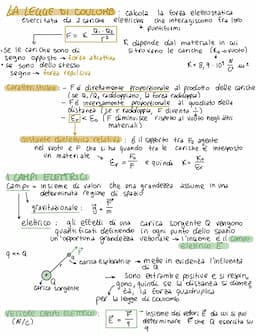 LA LEGGE DI COULOMB : calcola la forza elettrostatica
esercitata da 2 cariche elettriche che interagiscono fra loro
puntiformi
F = K Q₁ · Q₂ / r²
• Se le cariche sono di
segno opposto → forza attrattiva
• se sono dello stesso
segno → forza repulsiva
K dipende dal materiale in cui
si trovano le cariche (K₀ = vuoto)
K = 8,9 · 10⁹ N/C² m²
Caratteristiche - F è direttamente proporzionale al prodotto delle cariche
(se Q₁/Q₂ raddoppiano, la forza raddoppia)
- F è inversamente proporzionale al quadrato della
distanza (se r raddoppia, F diventa 1/4)
- Fr < F₀ (F diminuisce rispetto al vuoto negli altri
materiali)
costante dielettrica relativa : è il rapporto tra F₀ agente
nel vuoto e F che si ha quando tra le cariche è interposto
un materiale → εr = F₀/F e quindi K = K₀/εr
I CAMPI ELETTRICI
Campi = insieme di valori che una grandezza assume in una
determinata regione di spazio
gravitazionale : g = F/m
elettrico : gli effetti di una carica sorgente Q vengono
quantificati definendo in ogni punto dello spazio
un'opportuna grandezza vettoriale → l'insieme è il campo
elettrico E
q << Q
carica esplorativa → mette in evidenza l'influenza
di Q
carica sorgente
Sono entrambe positive e si respin_
gono, quindi se la distanza si dimez_
za, la forza quadruplica
per la legge di Coulomb
VETTORE CAMPO ELETTRICO : E = F/q = insieme dei vettori E da cui si può
(N/C)
determinare F che Q esercita su
q